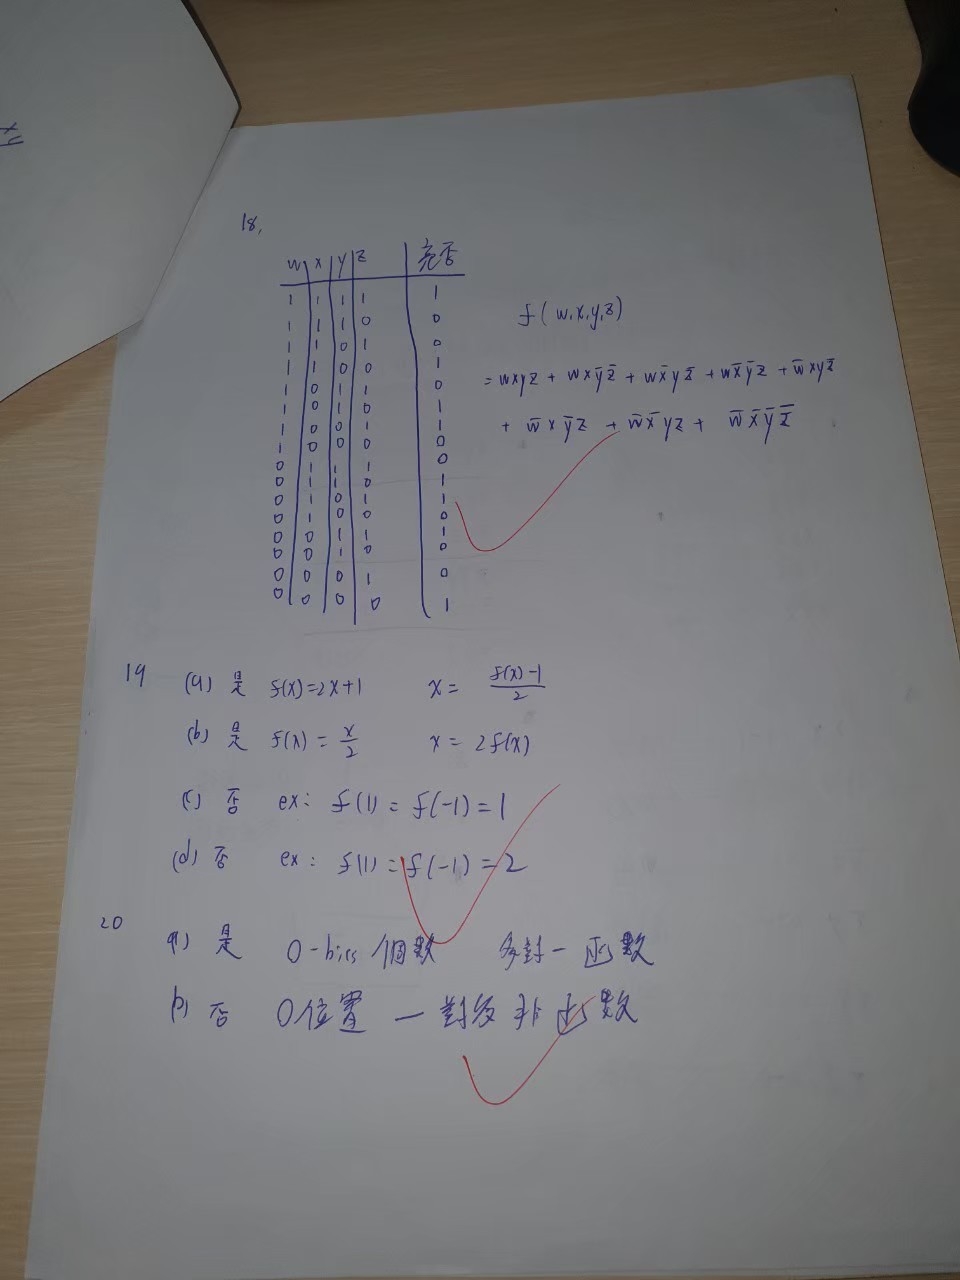 xy
18.
w x y z 亮否
1 1 1 1 1
1 1 1 0 0
1 1 0 1 0
1 1 0 0 1
1 0 1 1 0
1 0 1 0 1
1 0 0 1 1
1 0 0 0 0
0 1 1 1 0
0 1 1 0 1
0 1 0 1 1
0 1 0 0 0
0 0 1 1 1
0 0 1 0 0
0 0 0 1 0
0 0 0 0 1
f(w,x,y,z)
= wxyz + wxy̅z̅ + wx̅yz̅ + wx̅y̅z + w̅xyz̅
+ w̅xy̅z + w̅x̅yz + w̅x̅y̅z̅
19
(a) 是 f(x)=2x+1 x= f(x)-1/2
(b) 是 f(x) = x/2 x = 2f(x)
(c) 否 ex: f(1) = f(-1) = 1
(d) 否 ex: f(1) = f(-1) = 2
20
a) 是 0-bits 個數 多對一函數
b) 否 0位置 一對多 非函數